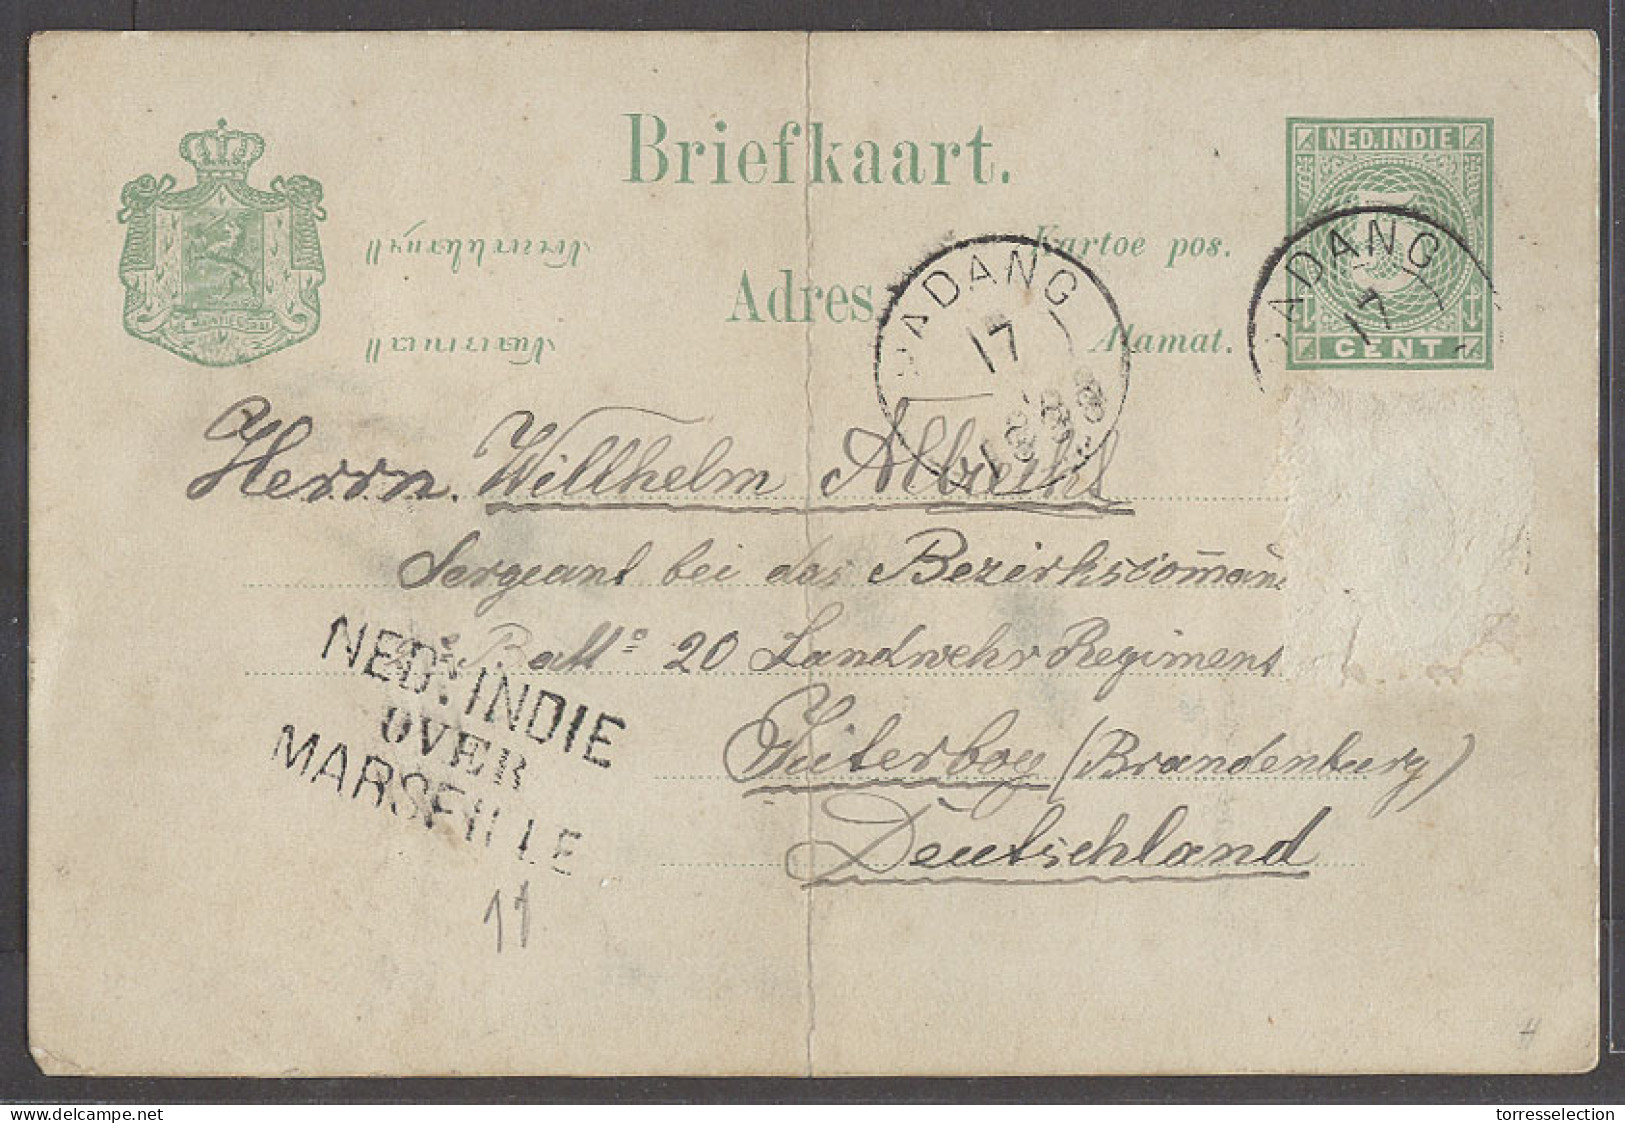 Briefkaart.
NED. INDIE
5
CENT
Kartoe pos.
Adres
Alamat.
JE MAINTIENDRAI
PADANG
17
1888
PADANG
17
Herrn. Willhelm Albrecht
Sergeant bei das Bezirkscom̄an
Batt⁰ 20 Landwehr Regiment
Jüterbog (Brandenburg)
Deutschland
NED: INDIE
OVER
MARSEILLE
11
delcampe.net
torresselection